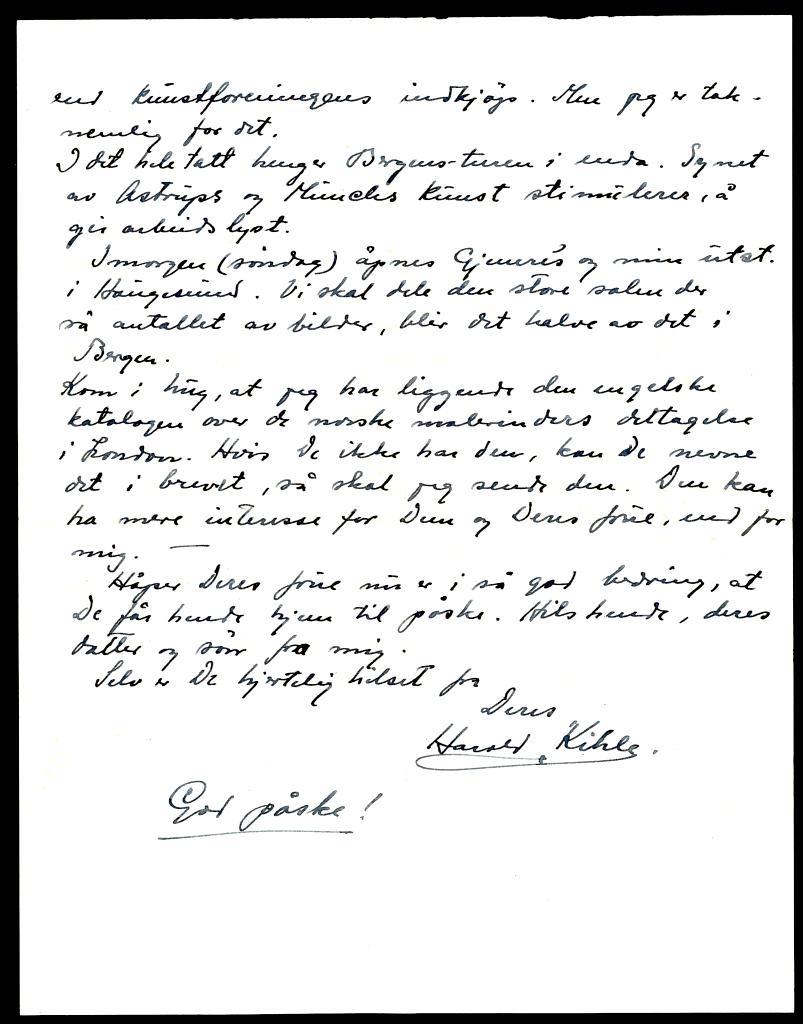 end kunstforeningens indkjøps. Men jeg er tak-
nemlig for det.
I det hele tatt henger Bergens-turen i enda. Synet
av Astrups og Munchs kunst stimulerer, å
gir arbeidslyst.
I morgen (søndag) åpnes Gjmerés og min utst.
i Haugesund. Vi skal dele den store salen der
så antallet av bilder, blir det halve av det i
Bergen.
Kom i hug, at jeg har liggende den engelske
katalogen over de norske malerinders deltagelse
i London. Hvis De ikke har den, kan De nevne
det i brevet, så skal jeg sende den. Den kan
ha mere interesse for Dem og Deres frue, end for
mig. —
Håper Deres frue nu er i så god bedring, at
De får hende hjem til påske. Hils hende, deres
datter og sønn fra mig.
Selv er De hjertelig hilset fra
Deres
Harald Kihle.
God påske!